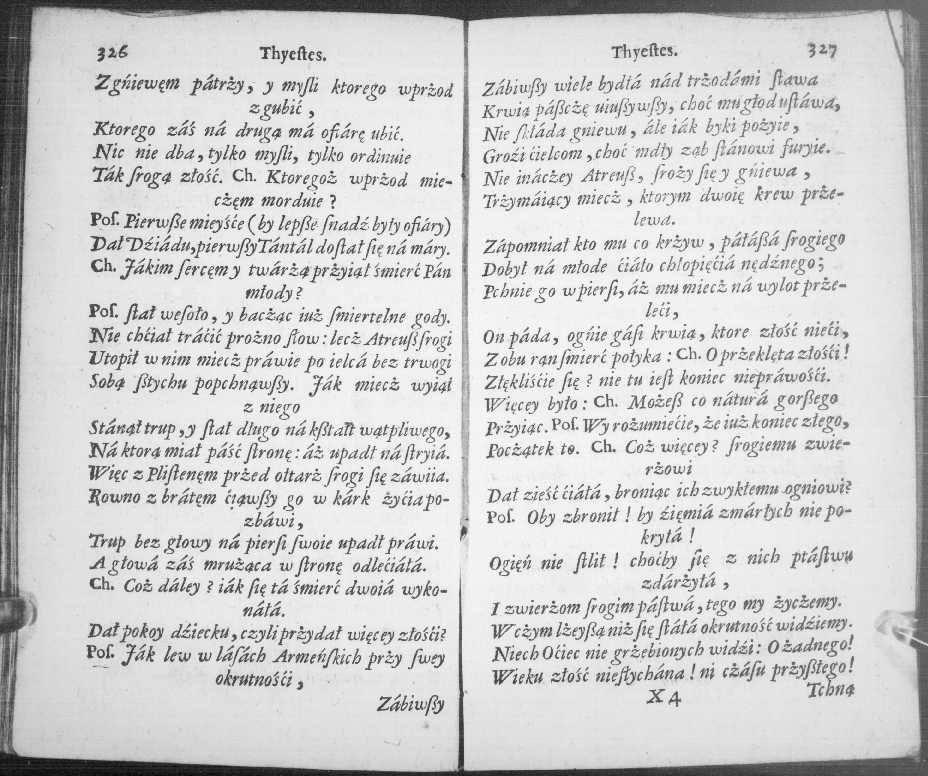 326 Thyeſtes.
Z gńiewęm pátrży, y myſli ktorego wprżod
zgubić,
Ktorego záś ná drugą má ofiárę ubić.
Nic nie dba, tylko myſli, tylko ordinuie
Ták ſrogą złość. Ch. Ktoregoż wprżod mie-
cżęm morduie?
Poſ. Pierwſße mieyśće (by lepſße ſnadź były ofiáry)
Dał Dźiádu, pierwſßy Tántál doſtał ſię ná máry.
Ch. Jákim ſercęm y twárżą prżyiął śmierć Pán
młody?
Poſ. ſtał weſoło, y bacżąc iuż ſmiertelne gody.
Nie chćiał tráćić prożno ſlow: lecż Atreuſß ſrogi
Utopił w nim miecż práwie po ielcá bez trwogi
Sobą ſßtychu popchnąwſßy. Ják miecż wyiął
z niego
Stánął trup, y ſtał długo ná kſßtałt wątpliwego,
Ná ktorą miał páść ſtronę: áż upadł ná ſtryiá.
Więc z Pliſtenęm przed ołtarż ſrogi ſię záwiia.
Rowno z brátęm ćiąwſßy go w kárk żyćia po-
zbáwi,
Trup bez głowy ná pierſi ſwoie upadł práwi.
A głowá záś mrużąca w ſtronę odlećiáłá.
Ch. Coż dáley? iák ſię tá śmierć dwoiá wyko-
náłá.
Dał pokoy dźiecku, czyli prżydał więcey złośći?
Poſ. Ják lew w láſách Armeńſkich prży ſwey
okrutnośći,
Zábiwſßy
Thyeſtes. 327
Zábiwſßy wiele bydłá nád trżodámi ſtawa
Krwią páſßcżę uiuſßywſßy, choć mu głod uſtáwa,
Nie ſkłáda gniewu, ále iák byki pożyie,
Groźi ćielcom, choć mdły ząb ſtánowi furyie.
Nie ináczey Atreuſß, ſroży ſię y gńiewa,
Trżymáiący miecż, ktorym dwoię krew prże-
lewa.
Zápomniał kto mu co krżyw, páłáſßá ſrogiego
Dobył ná młode ćiáło chłopięćiá nędźnego;
Pchnie go w pierſi, áż mu miecż ná wylot prże-
leći,
On páda, ogńie gáſi krwią, ktore złość nieći,
Z obu ran ſmierć połyka: Ch. O przeklęta złośći!
Zlękliśćie ſię? nie tu ieſt koniec niepráwośći.
Więcey było: Ch. Możeſß co náturá gorſßego
Prżyiąc. Poſ. Wy rozumiećie, że iuż koniec złego,
Początek to. Ch. Coż więcey? ſrogiemu zwie-
rżowi
Dał zieść ćiáłá, broniąc ich zwykłemu ogniowi?
Poſ. Oby zbronił! by źięmiá zmárłych nie po-
kryłá!
Ogięń nie ſtlił! choćby ſię z nich ptáſtwu
zdárżyłá,
I zwierżom ſrogim páſtwá, tego my życzżemy.
W cżym lżeyſßą niż ſię ſtáłá okrutność widźiemy.
Niech Oćiec nie grżebionych widźi: O żadnego!
Wieku złość nieſłychána! ni cżáſu prżyſßłego!
X 4 Tchną